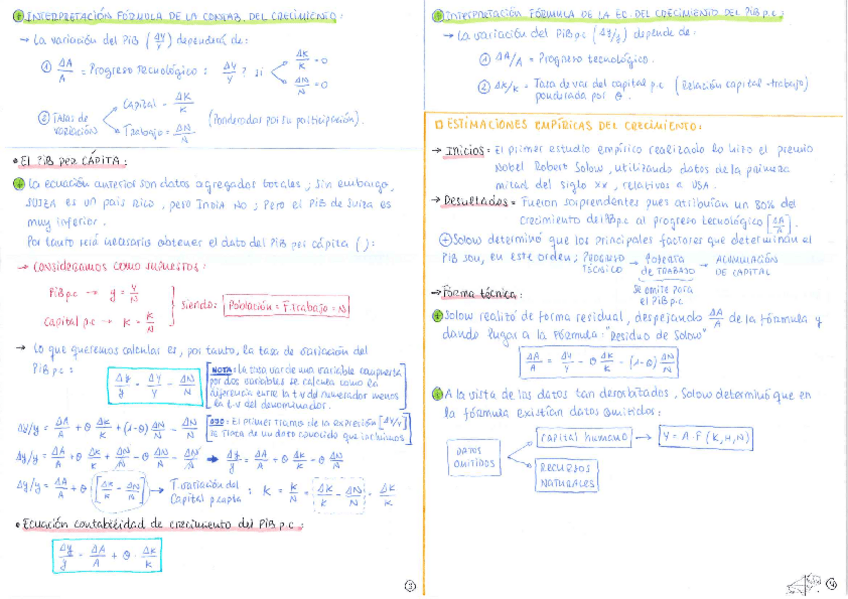 INTERPRETACIÓN FÓRMULA DE LA CONTAB. DEL CRECIMIENTO:
→ La variación del PiB (ΔY/Y) dependerá de:
① ΔA/A = Progreso Tecnológico: ΔY/Y? si ΔK/K = 0
ΔN/N = 0
② Tasas de variación
Capital = ΔK/K
Trabajo = ΔN/N
(Ponderadas por su participación).
• El PiB per CÁPITA:
La ecuación anterior son datos agregados totales; Sin embargo,
SUIZA es un país Rico, pero INDIA NO; Pero el PiB de Suiza es
muy inferior.
Por tanto será necesario obtener el dato del PiB per cápita ( ):
→ CONSIDERAMOS COMO SUPUESTOS:
PiB p.c → y = Y/N
Capital p.c → K = K/N
Siendo: Población = F.Trabajo = N
→ Lo que queremos calcular es, por tanto, la tasa de variación del
PiB p.c:
Δy/y = ΔY/Y - ΔN/N
NOTA: La tasa var de una variable compuesta
por dos variables se calcula como la
diferencia entre la t.v del numerador menos
la t.v del denominador.
OJO: El primer tramo de la expresión [ΔY/Y]
se trata de un dato conocido que incluimos
Δy/y = ΔA/A + θ ΔK/K + (1-θ) ΔN/N - ΔN/N
Δy/y = ΔA/A + θ ΔK/K + ΔN/N - θ ΔN/N - ΔN/N → Δy/y = ΔA/A + θ ΔK/K - θ ΔN/N
Δy/y = ΔA/A + θ [ΔK/K - ΔN/N] → T.variación del Capital p.capta : K = K/N = ΔK/K - ΔN/N = ΔK/K
• Ecuación contabilidad de crecimiento del PiB p.c:
Δy/y = ΔA/A + θ · ΔK/K
③
INTERPRETACIÓN FÓRMULA DE LA EC. DEL CRECIMIENTO DEL PiB p.c:
→ La variación del PiB p.c (Δy/y) depende de:
① ΔA/A = Progreso tecnológico.
② ΔK/K = Tasa de var del capital p.c (Relación capital-trabajo)
ponderada por θ.
ESTIMACIONES EMPÍRICAS DEL CRECIMIENTO:
→ Inicios = El primer estudio empírico realizado lo hizo el premio
Nobel Robert Solow, utilizando datos de la primera
mitad del siglo XX, relativos a USA.
→ Resultados = Fueron sorprendentes pues atribuían un 80% del
Crecimiento del PiB p.c al progreso tecnológico [ΔA/A]
Solow determinó que los principales factores que determinan el
PiB son, en este orden; PROGRESO TÉCNICO → FUERZA DE TRABAJO → ACUMULACIÓN DE CAPITAL
Se omite para
el PiB p.c
→ Forma técnica:
Solow realizó de forma residual, despejando ΔA/A de la fórmula y
dando lugar a la fórmula: "Residuo de Solow"
ΔA/A = ΔY/Y - θ ΔK/K - (1-θ) ΔN/N
A la vista de los datos tan desorbitados, Solow determinó que en
la fórmula existían datos omitidos:
DATOS OMITIDOS
Capital humano → Y = A·F (K,H,N)
RECURSOS NATURALES
④